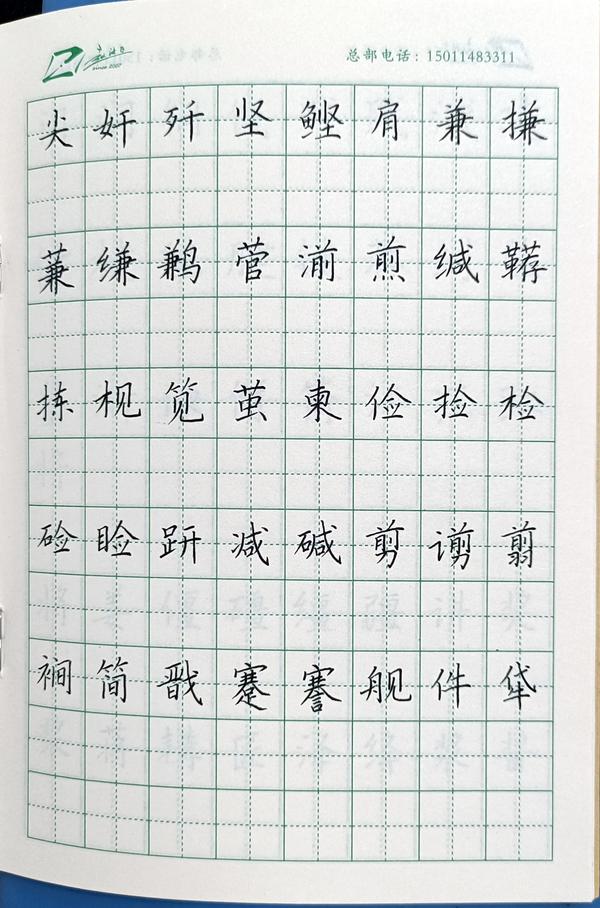 since 2007 总部电话：15011483311
尖奸歼坚鲣肩兼搛
蒹缣鹣菅湔煎缄鞯
拣枧笕茧柬俭捡检
硷睑趼减碱剪谫翦
裥简戬蹇謇舰件垡